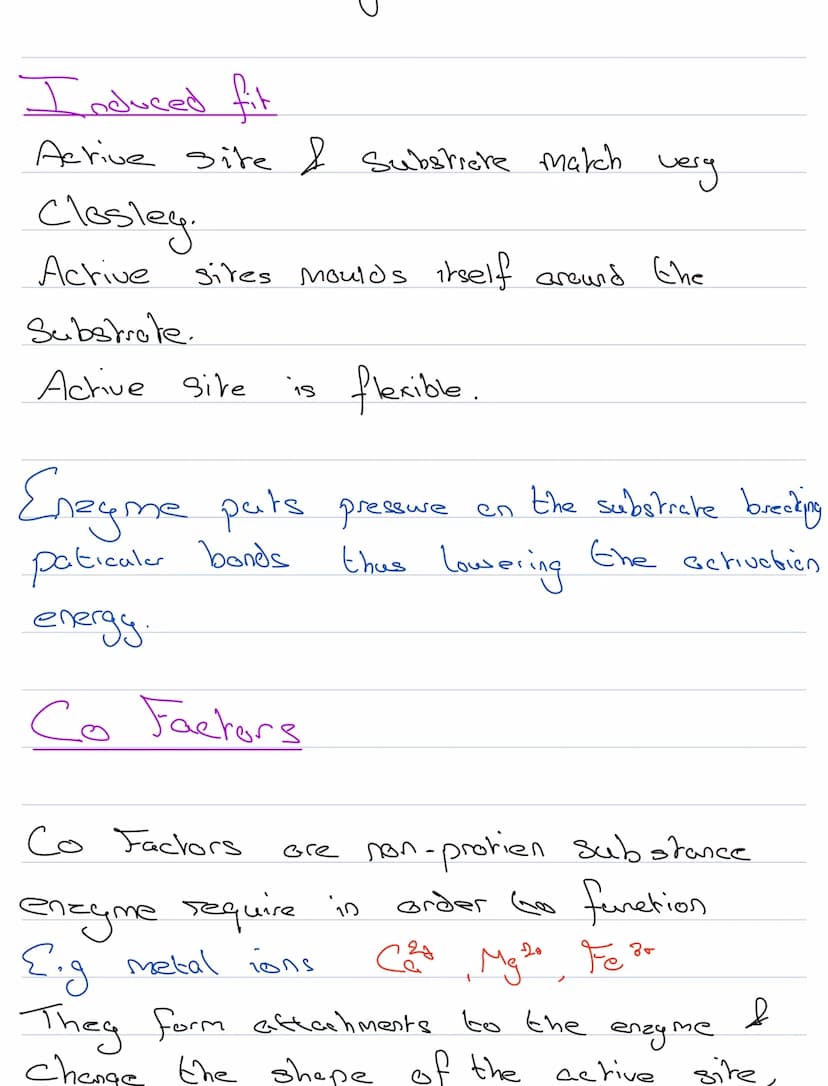 Induced fit
Active site & Substrate match very
Closley.
Active sites moulds itself around the
Substrate.
Active site is flexible.
Enzyme puts pressure on the substrate breaking
paticular bonds thus lowering the activation
energy.
Co Factors
Co Factors are non-protien substance
enzyme require in order to function
E.g metal ions Ca²⁺, Mg²⁺, Fe³⁺
They form attachments to the enzyme &
change the shape of the active site,